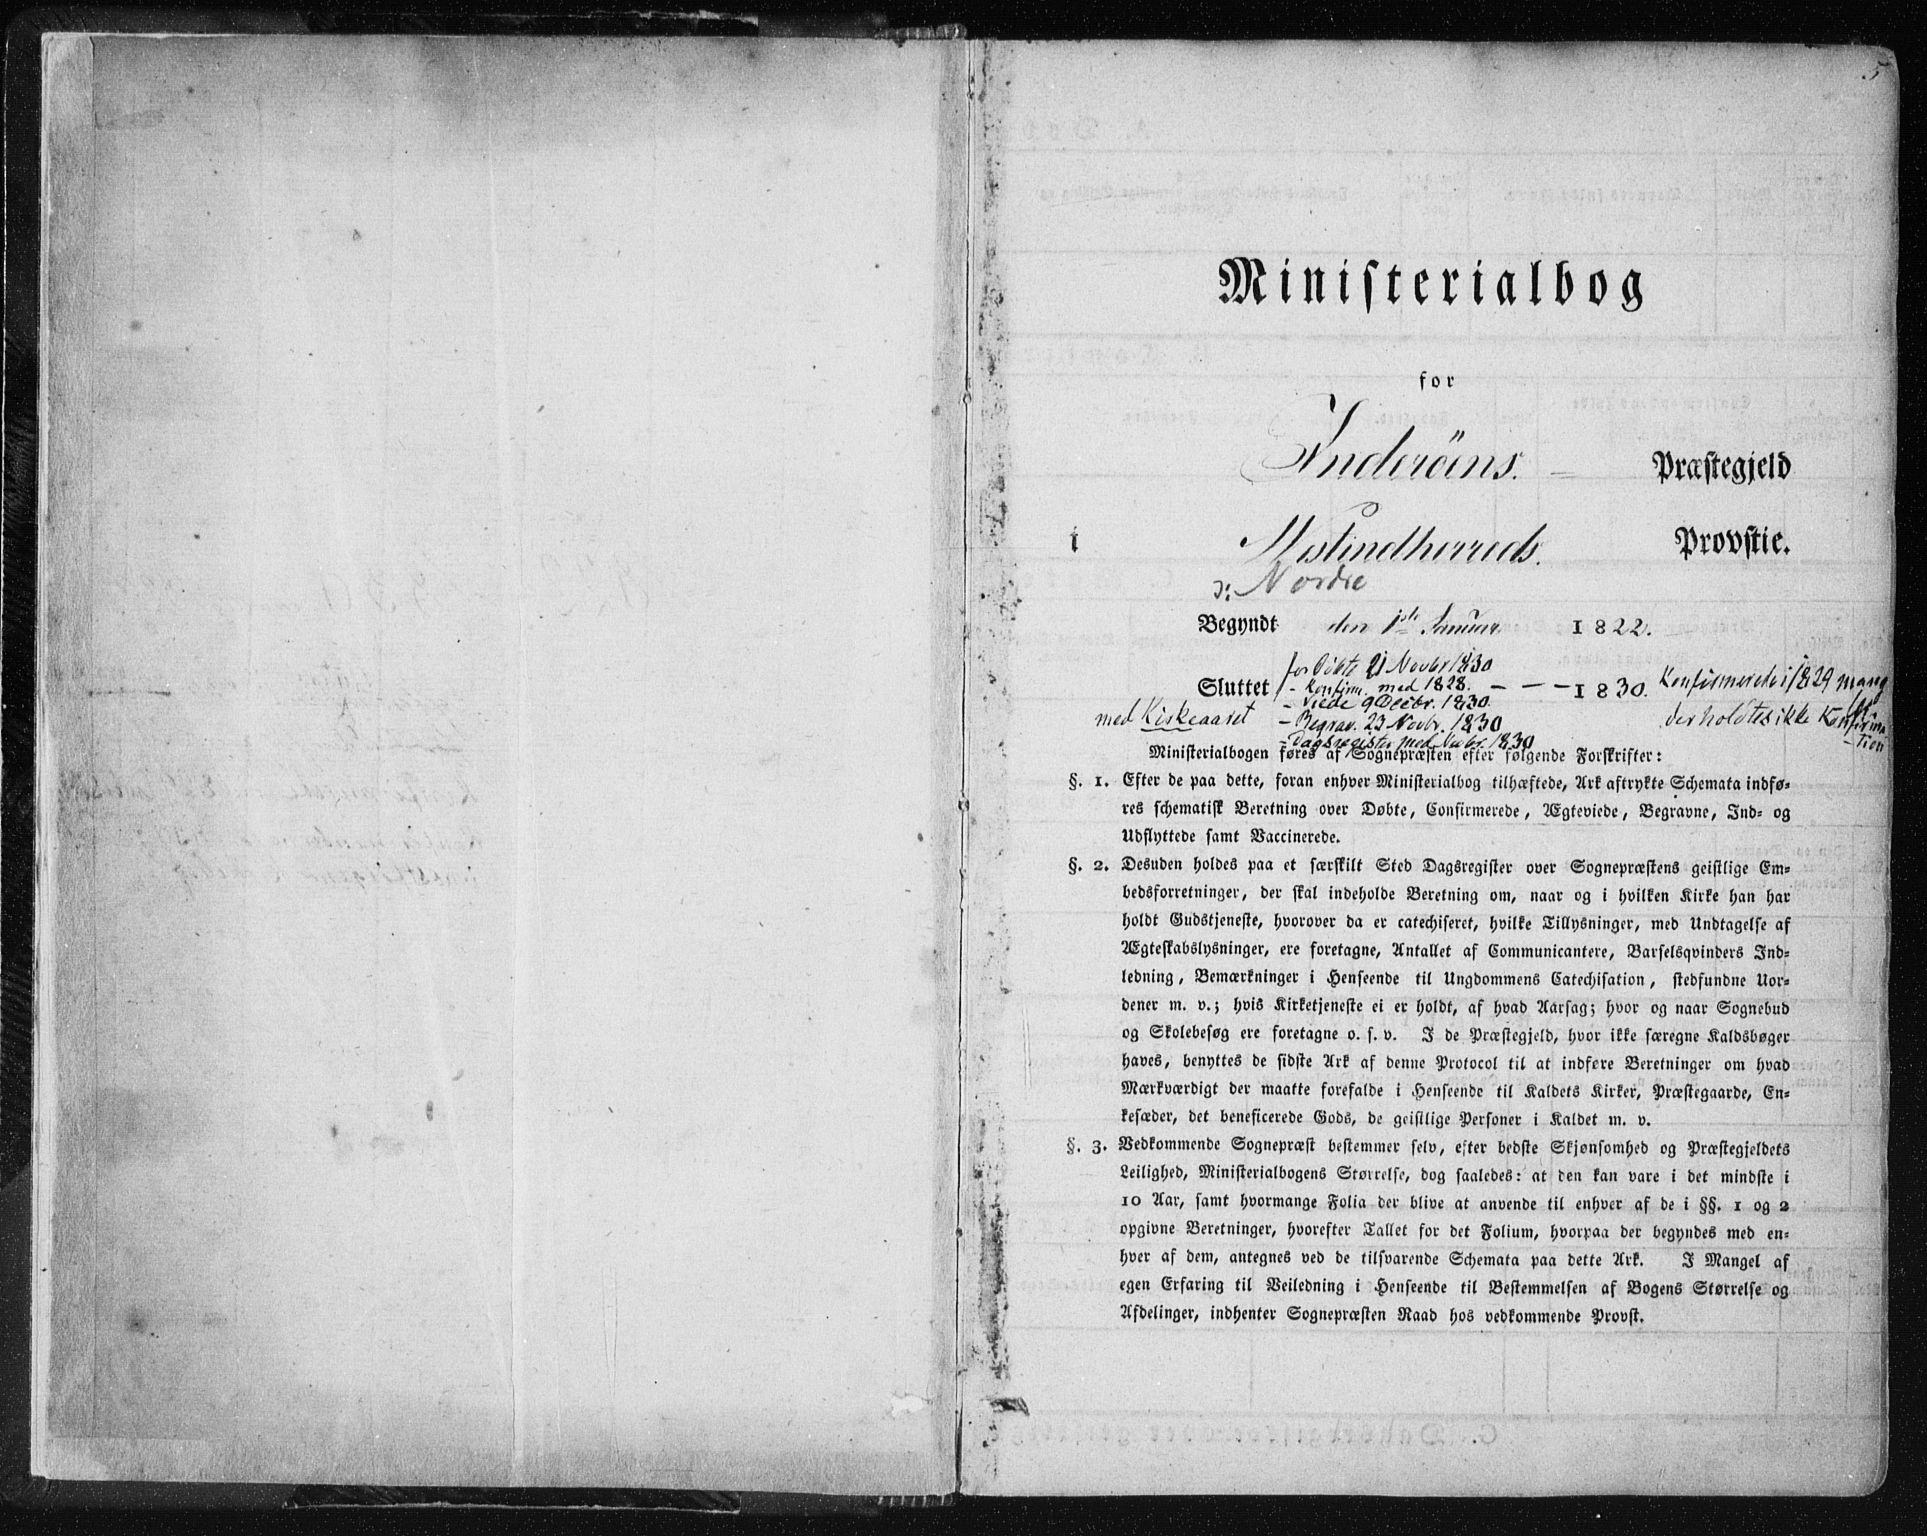 5
Ministerialbog
for
Inderöens. Præstegjeld
i Indherreds. Provstie.
ↄ: Nordre
Begyndt den 1ste Januar 1822.
for Döbte 21 Novbr 1830
Sluttet - Konfirm. med 1828. - - - 1830. Konfirmerede i 1829 mang
- Viede 9 Decbr. 1830.
med Kirkeaaret - Begrav. 23 Novbr. 1830 der holdtes ikke Konfirma
- Dagsregister med Novbr. 1830 -tion
Ministerialbogen føres af Sognepræsten efter følgende Forskrifter:
§. 1. Efter de paa dette, foran enhver Ministerialbog tilhæftede, Ark aftrykte Schemata indfø-
res schematisk Beretning over Døbte, Confirmerede, Ægteviede, Begravne, Ind- og
Udflyttede samt Vaccinerede.
§. 2. Desuden holdes paa et særskilt Sted Dagsregister over Sognepræstens geistlige Em-
bedsforretninger, der skal indeholde Beretning om, naar og i hvilken Kirke han har
holdt Gudstjeneste, hvorover da er catechiseret, hvilke Tillysninger, med Undtagelse af
Ægteskabslysninger, ere foretagne, Antallet af Communicantere, Barselqvinders Ind-
ledning, Bemærkninger i Henseende til Ungdommens Catechisation, stedfundne Uor-
dener m. v.; hvis Kirketjeneste ei er holdt, af hvad Aarsag; hvor og naar Sognebud
og Skolebesøg ere foretagne o. s. v. I de Præstegjeld, hvor ikke særegne Kaldsbøger
haves, benyttes de sidste Ark af denne Protocol til at indføre Beretninger om hvad
Mærkværdigt der maatte forefalde i Henseende til Kaldets Kirker, Præstegaarde, En-
kesæder, det beneficerede Gods, de geistlige Personer i Kaldet m. v.
§. 3. Vedkommende Sognepræst bestemmer selv, efter bedste Skjønsomhed og Præstegjeldets
Leilighed, Ministerialbogens Størrelse, dog saaledes: at den kan vare i det mindste i
10 Aar, samt hvormange Folia der blive at anvende til enhver af de i §§. 1 og 2
opgivne Beretninger, hvorefter Tallet for det Folium, hvorpaa der begyndes med en-
hver af dem, antegnes ved de tilsvarende Schemata paa dette Ark. I Mangel af
egen Erfaring til Veiledning i Henseende til Bestemmelsen af Bogens Størrelse og
Afdelinger, indhenter Sognepræsten Raad hos vedkommende Provst.